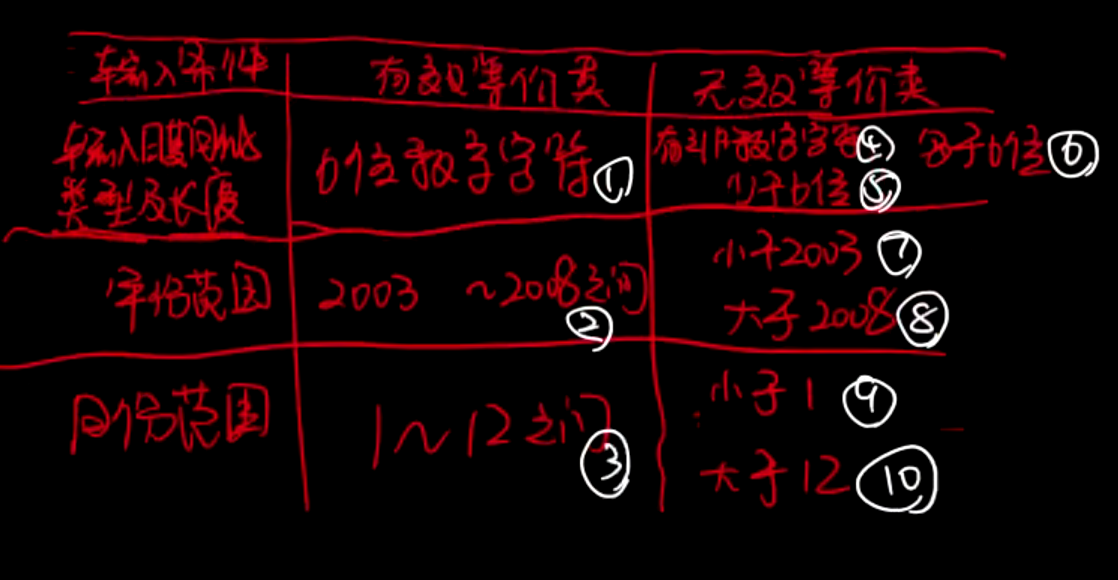 输入条件 有效等价类 无效等价类
输入日期的
类型及长度
6位数字字符 ①
有非数字字符 ④ 多于6位 ⑥
少于6位 ⑤
年份范围 2003 ~2008之间 ②
小于2003 ⑦
大于2008 ⑧
月份范围 1~12之间 ③
小于1 ⑨
大于12 ⑩